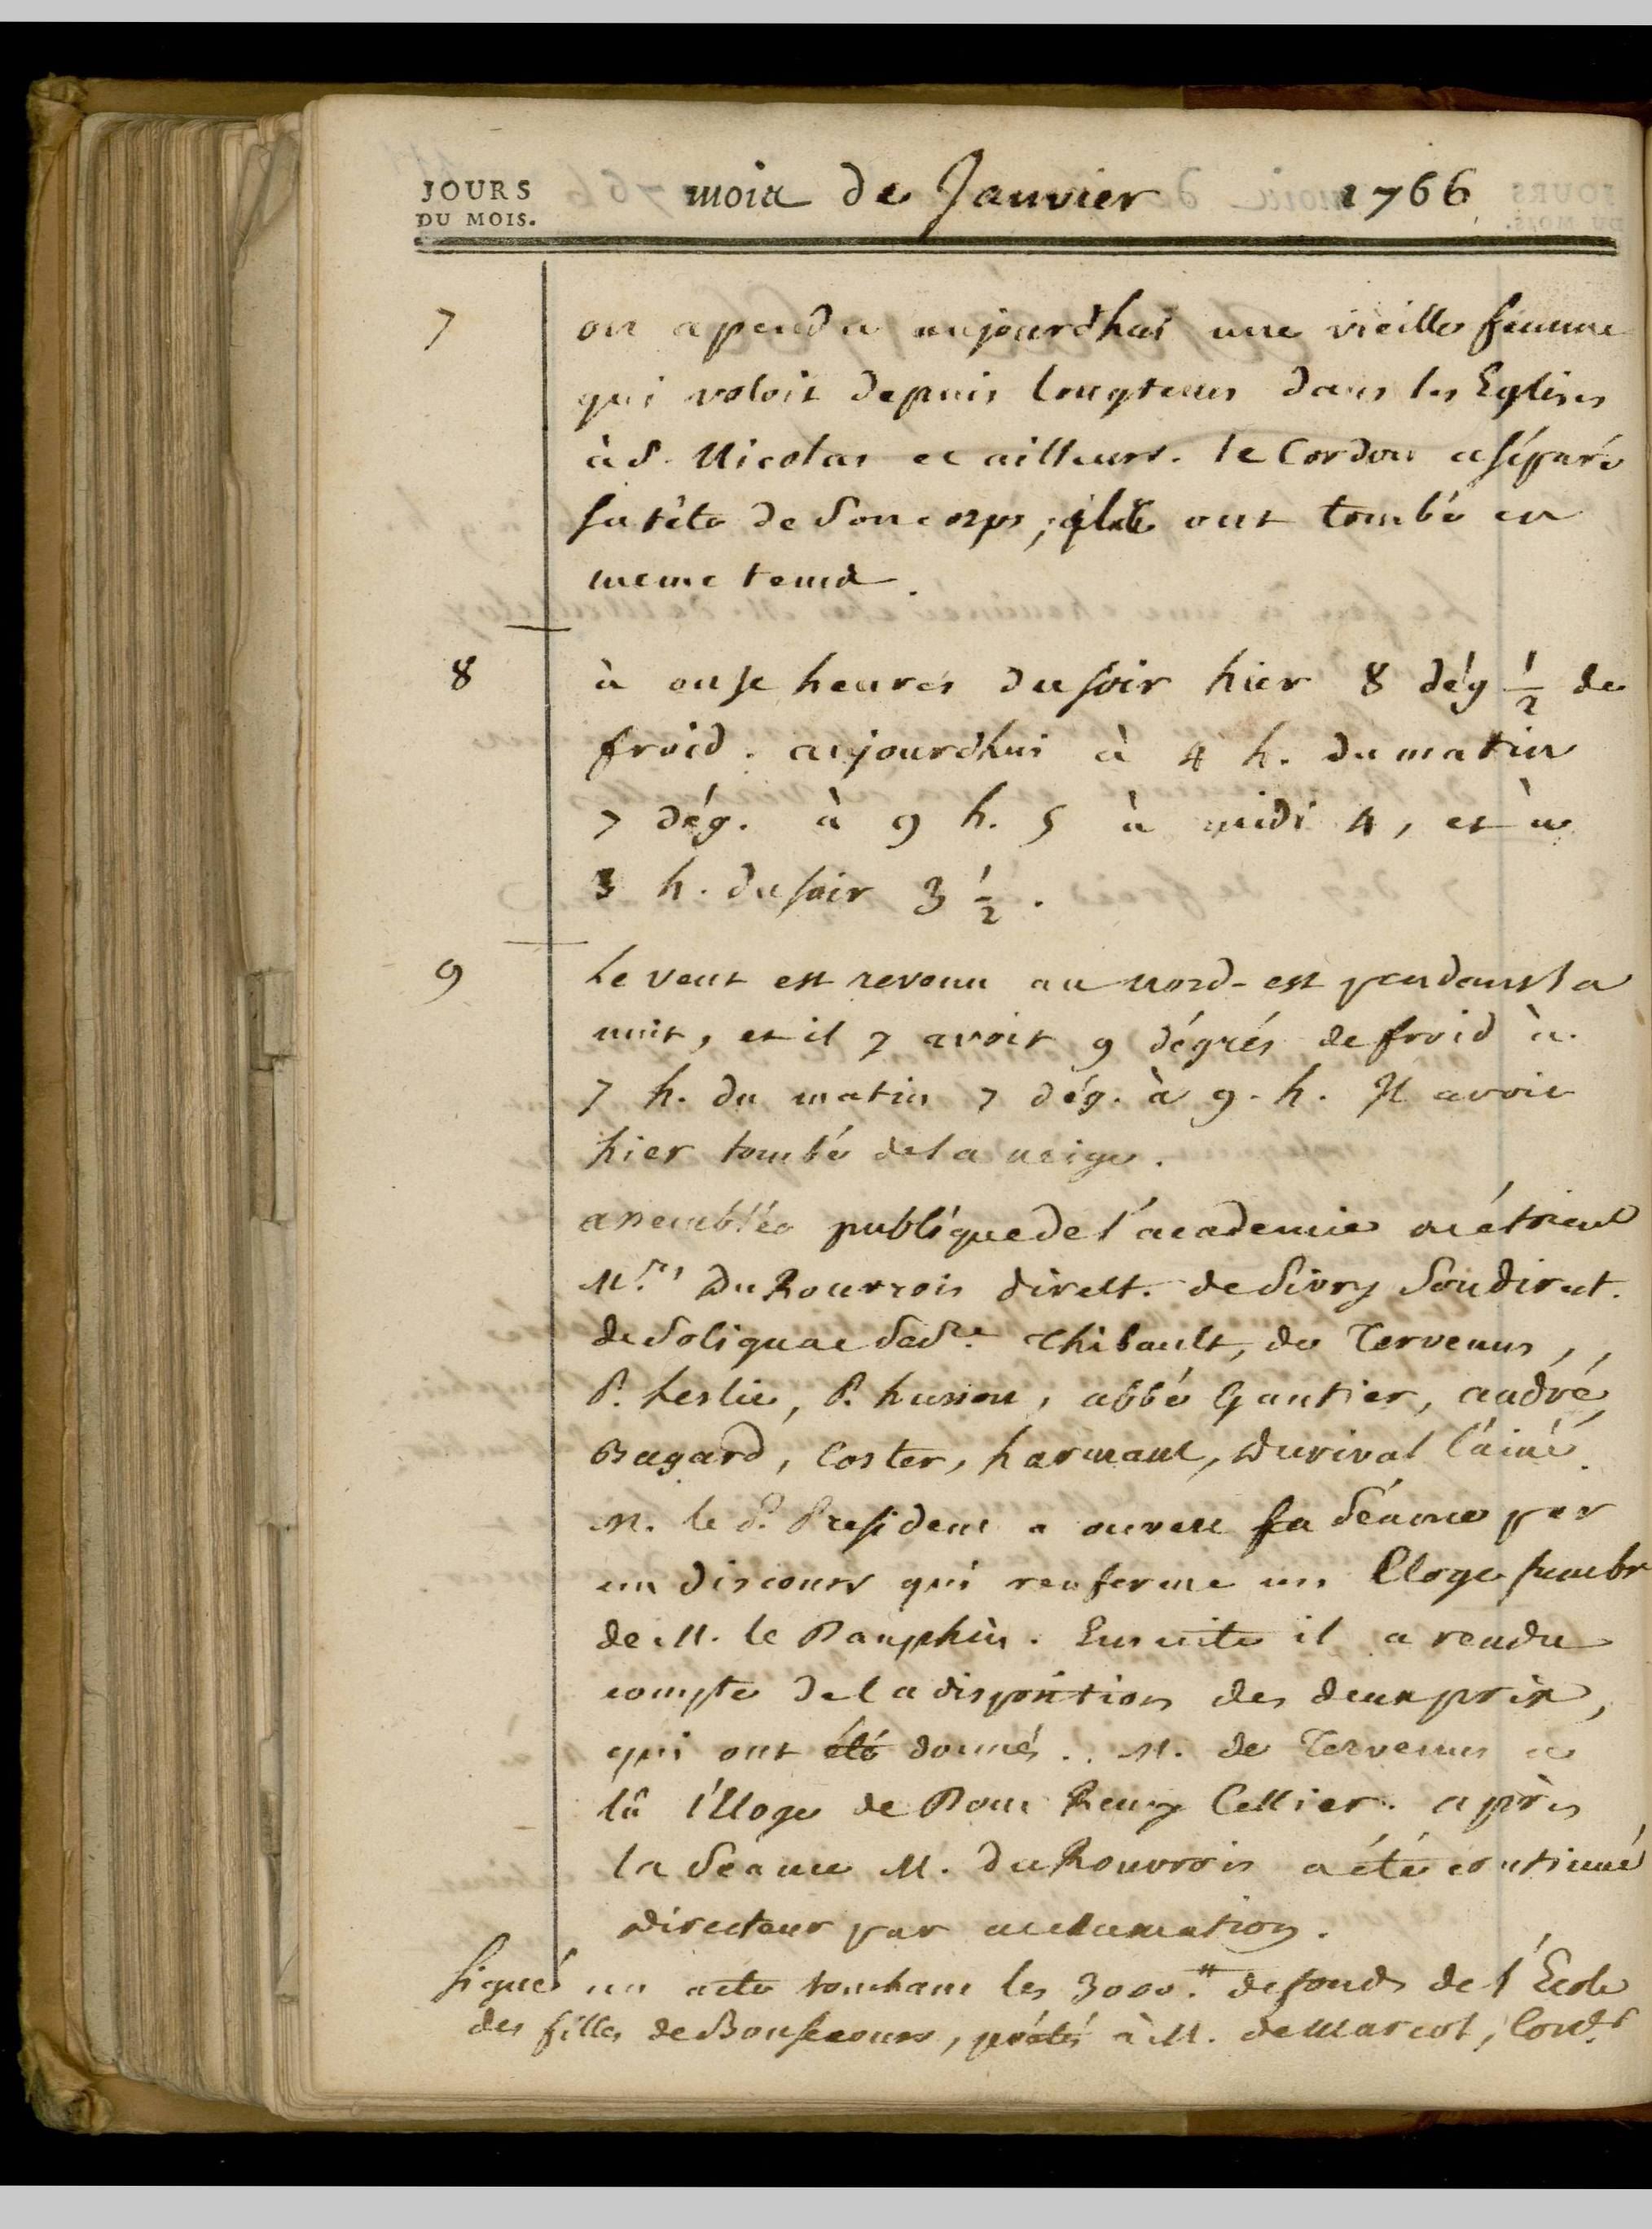 JOURS
DU MOIS.
mois de Janvier 1766
7 on a pendu aujourdhui une vieille femme
qui voloit depuis longtems dans les Eglises
à S. Nicolas et ailleurs. le Cordon a séparé
sa tête de son corps, ils ont tombé en
meme tems.
8 à onse heures du soir hier 8 dég 1/2 de
froid. aujourdhui à 4 h. du matin
7 dég. à 9 h. 5 à midi 4, et à
3 h. du soir 3 1/2.
9 Le vent est revenu au nord-est pendant la
nuit, et il y avoit 9 dégrés de froid à
7 h. du matin 7 dég. à 9. h. Il avoit
hier tombé de la neige.
assemblée publique de l'academie où étoient
Mrs. Du Rouvrois direct. de Sivry Soudirect.
de Solignac Secre. Thibault, de Tervenus,
P. Leslie, P. husson, abbé Gautier, andré,
Bagard, Coster, harmant, Durival l'ainé.
M. le P. President a ouvert sa Séance par
un discours qui renferme un Eloge funebr
de M. le Dauphin. Ensuite il a rendu
compte de la disposition des deux prix,
qui ont été donnés. M. de Tervenus a
lû l'Eloge de Dom Remy Cellier. après
la Séance M. du Rouvrois a été continué
directeur par acclamation.
signé un acte touchant les 3000.# de fonds de l'Ecole
des filles de Bonsecours, prêtés à M. de Marcol, Cons.r